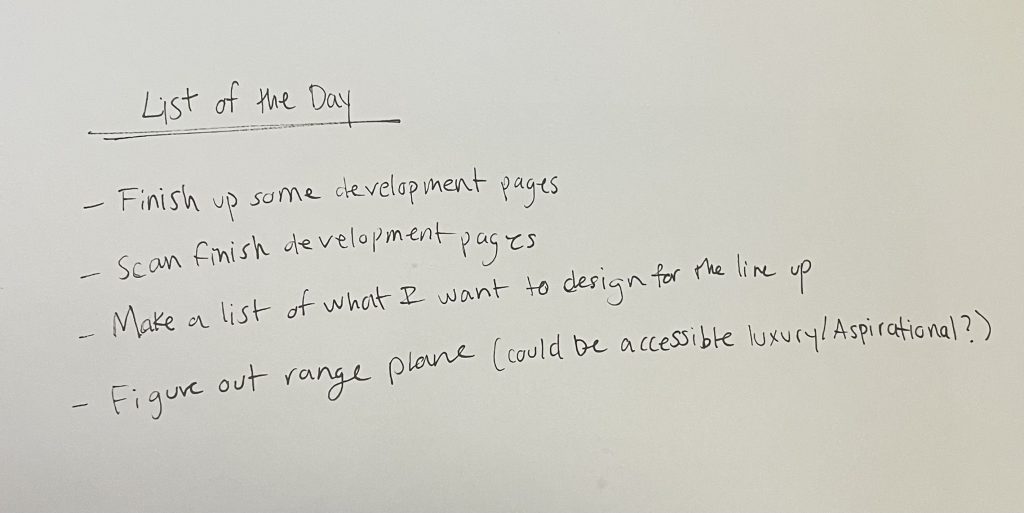 List of the Day
- Finish up some development pages
- Scan finish development pages
- Make a list of what I want to design for the line up
- Figure out range plane (could be accessible luxury/Aspirational?)